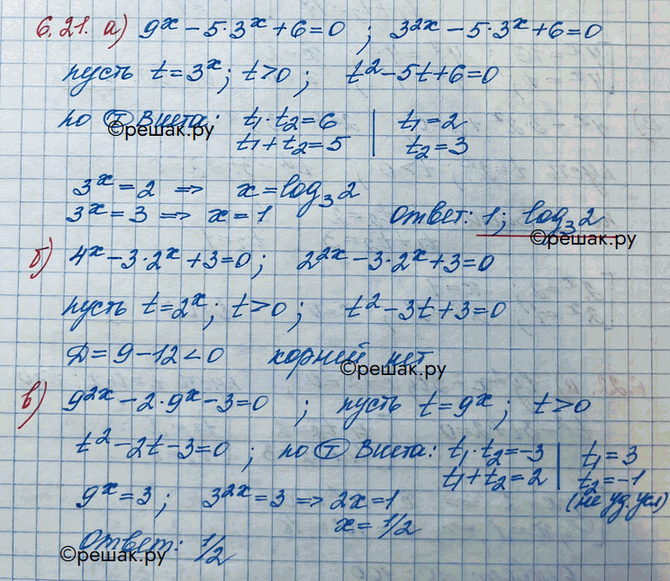 6.21. а) 9ˣ − 5·3ˣ + 6 = 0 ; 3²ˣ − 5·3ˣ + 6 = 0
пусть t = 3ˣ ; t > 0 ; t² − 5t + 6 = 0
по Ⓣ Виета: t₁·t₂ = 6 | t₁ = 2
©решак.ру
t₁ + t₂ = 5 | t₂ = 3
3ˣ = 2 ⇒ x = log₃2
3ˣ = 3 ⇒ x = 1 Ответ: 1; log₃2
©решак.ру
б) 4ˣ − 3·2ˣ + 3 = 0 ; 2²ˣ − 3·2ˣ + 3 = 0
пусть t = 2ˣ ; t > 0 ; t² − 3t + 3 = 0
D = 9 − 12 < 0 корней нет
©решак.ру
в) 9²ˣ − 2·9ˣ − 3 = 0 ; пусть t = 9ˣ ; t > 0
t² − 2t − 3 = 0 ; по Ⓣ Виета: t₁·t₂ = −3 | t₁ = 3
t₁ + t₂ = 2 | t₂ = −1
9ˣ = 3 ; 3²ˣ = 3 ⇒ 2x = 1 (не уд. усл)
x = 1/2
Ответ: 1/2
©решак.ру